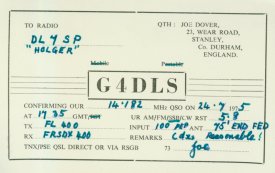 TO RADIO
DL4SP
"HOLGER"
QTH : JOE DOVER,
23, WEAR ROAD,
STANLEY,
Co. DURHAM,
ENGLAND.
Mobile Portable
G4DLS
CONFIRMING OUR 14.182 MHz QSO ON 24.7.1975
AT 1735 GMT/BST UR AM/FM/SSB/CW RST 5.8
TX FL 400 INPUT 100 ANT 75' END FED
RX FRSDX 400 REMARKS Cdxs Reasonable!
TNX/PSE QSL DIRECT OR VIA RSGB 73 Joe